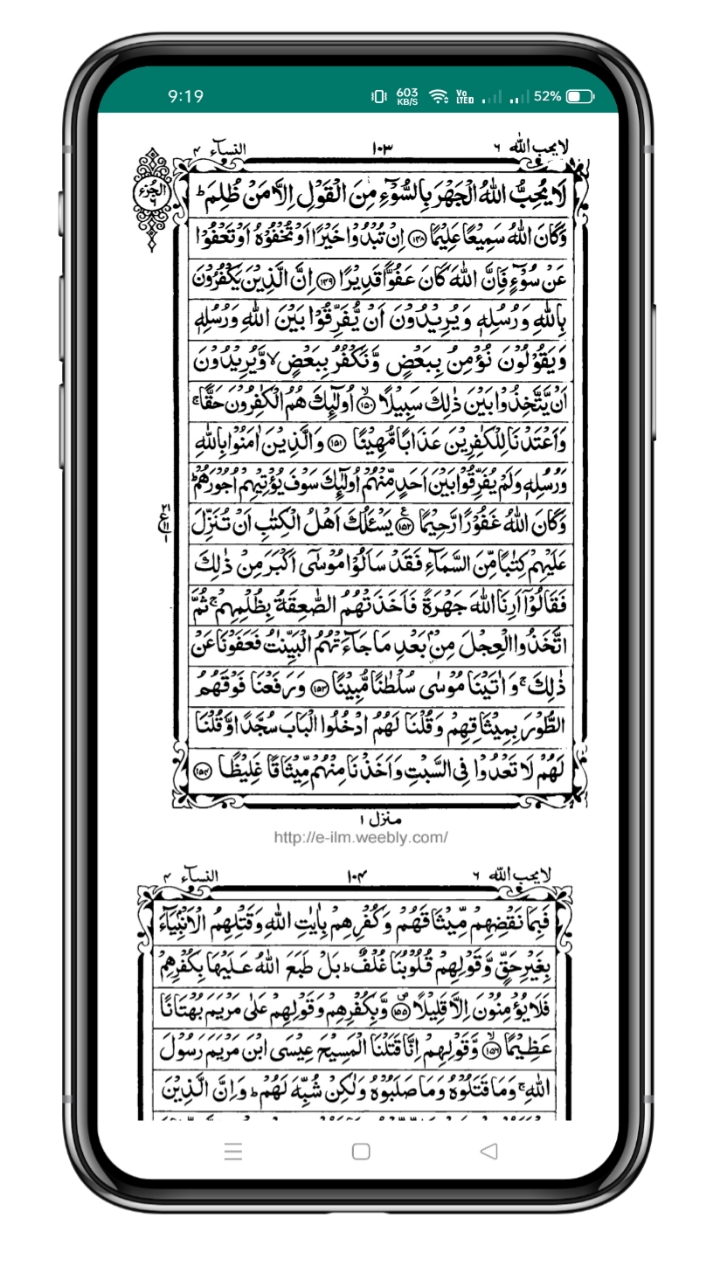 9:19
603 KB/S Vo LTE 52%
لا يحب الله ٦ ١٠٣ النسآء ٤
الجزء ٦
لَا يُحِبُّ اللّٰهُ الْجَهْرَ بِالسُّوْٓءِ مِنَ الْقَوْلِ اِلَّا مَنْ ظُلِمَ ؕ
وَكَانَ اللّٰهُ سَمِيْعًا عَلِيْمًا ﴿۱۴۸﴾ اِنْ تُبْدُوْا خَيْرًا اَوْ تُخْفُوْهُ اَوْ تَعْفُوْا
عَنْ سُوْٓءٍ فَاِنَّ اللّٰهَ كَانَ عَفُوًّا قَدِيْرًا ﴿۱۴۹﴾ اِنَّ الَّذِيْنَ يَكْفُرُوْنَ
بِاللّٰهِ وَرُسُلِهٖ وَيُرِيْدُوْنَ اَنْ يُّفَرِّقُوْا بَيْنَ اللّٰهِ وَرُسُلِهٖ
وَيَقُوْلُوْنَ نُؤْمِنُ بِبَعْضٍ وَّنَكْفُرُ بِبَعْضٍ ۙ وَّيُرِيْدُوْنَ
اَنْ يَّتَّخِذُوْا بَيْنَ ذٰلِكَ سَبِيْلًا ﴿۱۵۰﴾ۙ اُولٰٓئِكَ هُمُ الْكٰفِرُوْنَ حَقًّا ۚ
وَاَعْتَدْنَا لِلْكٰفِرِيْنَ عَذَابًا مُّهِيْنًا ﴿۱۵۱﴾ وَالَّذِيْنَ اٰمَنُوْا بِاللّٰهِ
وَرُسُلِهٖ وَلَمْ يُفَرِّقُوْا بَيْنَ اَحَدٍ مِّنْهُمْ اُولٰٓئِكَ سَوْفَ يُؤْتِيْهِمْ اُجُوْرَهُمْ ؕ
وَكَانَ اللّٰهُ غَفُوْرًا رَّحِيْمًا ﴿۱۵۲﴾ يَسْـَٔلُكَ اَهْلُ الْكِتٰبِ اَنْ تُنَزِّلَ
عَلَيْهِمْ كِتٰبًا مِّنَ السَّمَآءِ فَقَدْ سَاَلُوْا مُوْسٰٓى اَكْبَرَ مِنْ ذٰلِكَ
فَقَالُوْٓا اَرِنَا اللّٰهَ جَهْرَةً فَاَخَذَتْهُمُ الصّٰعِقَةُ بِظُلْمِهِمْ ۚ ثُمَّ
اتَّخَذُوا الْعِجْلَ مِنْۢ بَعْدِ مَا جَآءَتْهُمُ الْبَيِّنٰتُ فَعَفَوْنَا عَنْ
ذٰلِكَ ۚ وَاٰتَيْنَا مُوْسٰى سُلْطٰنًا مُّبِيْنًا ﴿۱۵۳﴾ وَرَفَعْنَا فَوْقَهُمُ
الطُّوْرَ بِمِيْثَاقِهِمْ وَقُلْنَا لَهُمُ ادْخُلُوا الْبَابَ سُجَّدًا وَّقُلْنَا
لَهُمْ لَا تَعْدُوْا فِى السَّبْتِ وَاَخَذْنَا مِنْهُمْ مِّيْثَاقًا غَلِيْظًا ﴿۱۵۴﴾
منزل ١
http://e-ilm.weebly.com/
لا يحب الله ٦ ١٠٤ النسآء ٤
فَبِمَا نَقْضِهِمْ مِّيْثَاقَهُمْ وَكُفْرِهِمْ بِاٰيٰتِ اللّٰهِ وَقَتْلِهِمُ الْاَنْۢبِيَآءَ
بِغَيْرِ حَقٍّ وَّقَوْلِهِمْ قُلُوْبُنَا غُلْفٌ ؕ بَلْ طَبَعَ اللّٰهُ عَلَيْهَا بِكُفْرِهِمْ
فَلَا يُؤْمِنُوْنَ اِلَّا قَلِيْلًا ﴿۱۵۵﴾ وَّبِكُفْرِهِمْ وَقَوْلِهِمْ عَلٰى مَرْيَمَ بُهْتَانًا
عَظِيْمًا ﴿۱۵۶﴾ۙ وَّقَوْلِهِمْ اِنَّا قَتَلْنَا الْمَسِيْحَ عِيْسَى ابْنَ مَرْيَمَ رَسُوْلَ
اللّٰهِ ۚ وَمَا قَتَلُوْهُ وَمَا صَلَبُوْهُ وَلٰكِنْ شُبِّهَ لَهُمْ ؕ وَاِنَّ الَّذِيْنَ